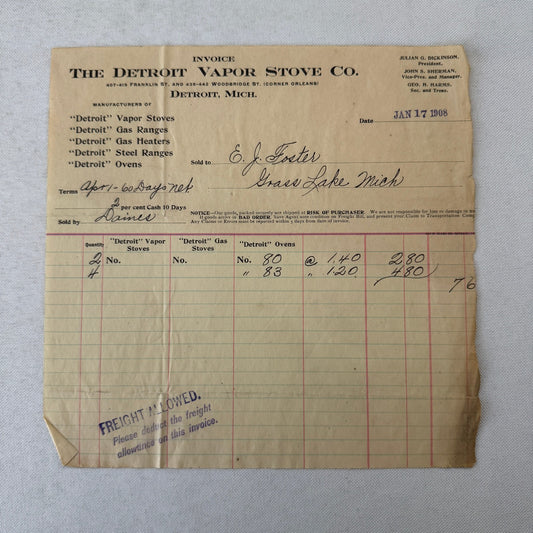 INVOICE
THE DETROIT VAPOR STOVE CO.
407-415 FRANKLIN ST. AND 436-442 WOODBRIDGE ST. (CORNER ORLEANS)
DETROIT, MICH.
JULIAN G. DICKINSON,
President.
JOHN S. SHERMAN,
Vice-Pres. and Manager.
GEO. H. HARMS,
Sec. and Treas.
MANUFACTURERS OF
"Detroit" Vapor Stoves
"Detroit" Gas Ranges
"Detroit" Gas Heaters
"Detroit" Steel Ranges
"Detroit" Ovens
Date JAN 17 1908
Sold to E. J. Foster
Grass Lake Mich
Terms Apr 1-60 Days net
2 per cent Cash 10 Days
Sold by Daines
NOTICE—Our goods, packed securely are shipped at RISK OF PURCHASER. We are not responsible for loss or damage in
If goods arrive in BAD ORDER, have Agent note condition on Freight Bill, and present your Claim to Transportation
Any Claims or Errors must be reported within 5 days from date of invoice.
Quantity "Detroit" Vapor Stoves "Detroit" Gas Stoves "Detroit" Ovens
2 No. No. No. 80 @ 1.40 2 80
4 " 83 " 1.20 4 80
7 6
FREIGHT ALLOWED.
Please deduct the freight
allowance on this invoice.